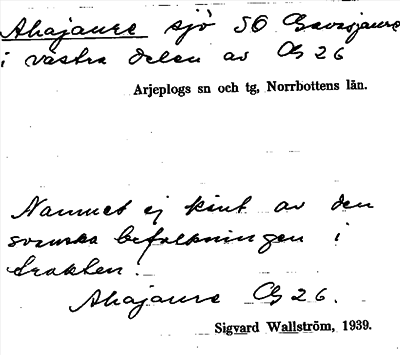 Ahajaure sjö SO Gavasjaure
i västra delen av G 26
Arjeplogs sn och tg, Norrbottens län.
Namnet ej känt av den
svenska befolkningen i
trakten.
Ahajaure G 26.
Sigvard Wallström, 1939.